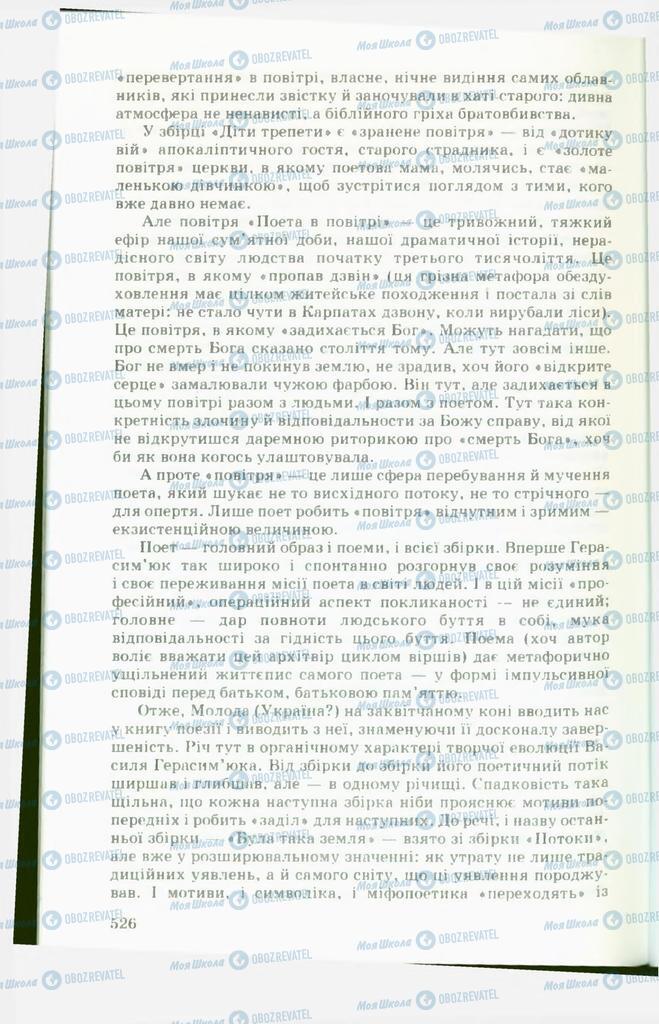 «перевертання» в повітрі, власне, нічне видіння самих облав-
ників, які принесли звістку й заночували в хаті старого: дивна
атмосфера не ненависті, а біблійного гріха братовбивства.
У збірці «Діти трепети» є «зранене повітря» — від «дотику
вій» апокаліптичного гостя, старого страдника, і є «золоте
повітря» церкви, в якому поетова мама, молячись, стає «ма-
ленькою дівчинкою», щоб зустрітися поглядом з тими, кого
вже давно немає.
Але повітря «Поета в повітрі» — це тривожний, тяжкий
ефір нашої сум’ятної доби, нашої драматичної історії, нера-
дісного світу людства початку третього тисячоліття. Це
повітря, в якому «пропав дзвін» (ця грізна метафора обезду-
ховлення має цілком житейське походження і постала зі слів
матері: не стало чути в Карпатах дзвону, коли вирубали ліси).
Це повітря, в якому «задихається Бог». Можуть нагадати, що
про смерть Бога сказано століття тому. Але тут зовсім інше.
Бог не вмер і не покинув землю, не зрадив, хоч його «відкрите
серце» замалювали чужою фарбою. Він тут, але задихається в
цьому повітрі разом з людьми. І разом з поетом. Тут така кон-
кретність злочину й відповідальності за Божу справу, від якої
не відкрутишся даремною риторикою про «смерть Бога», хоч
би як вона когось улаштовувала.
А проте «повітря» — це лише сфера перебування й мучення
поета, який шукає не то висхідного потоку, не то стрічного —
для опертя. Лише поет робить «повітря» відчутним і зримим —
екзистенційною величиною.
Поет — головний образ і поеми, і всієї збірки. Вперше Гера-
сим’юк так широко і спонтанно розгорнув своє розуміння
і своє переживання місії поета в світі людей. І в цій місії «про-
фесійний», операційний аспект покликаності — не єдиний;
головне — дар повноти людського буття в собі, мука
відповідальності за гідність цього буття. Поема (хоч автор
воліє вважати цей архітвір циклом віршів) дає метафорично
ущільнений життєпис самого поета — у формі імпульсивної
сповіді перед батьком, батьковою пам’яттю.
Отже, Молода (Україна?) на заквітчаному коні вводить нас
у книгу поезії і виводить з неї, знаменуючи її досконалу завер-
шеність. Річ тут в органічному характері творчої еволюції Ва-
силя Герасим’юка. Від збірки до збірки його поетичний потік
ширшав і глибшав, але — в одному річищі. Спадковість така
щільна, що кожна наступна збірка ніби прояснює мотиви по-
передніх і робить «заділ» для наступних. До речі, і назву остан-
ньої збірки — «Була така земля» — взято зі збірки «Потоки»,
але вже у розширювальному значенні: як утрату не лише тра-
диційних уявлень, а й самого світу, що ці уявлення породжу-
вав. І мотиви, і символіка, і міфопоетика «переходять» із
526